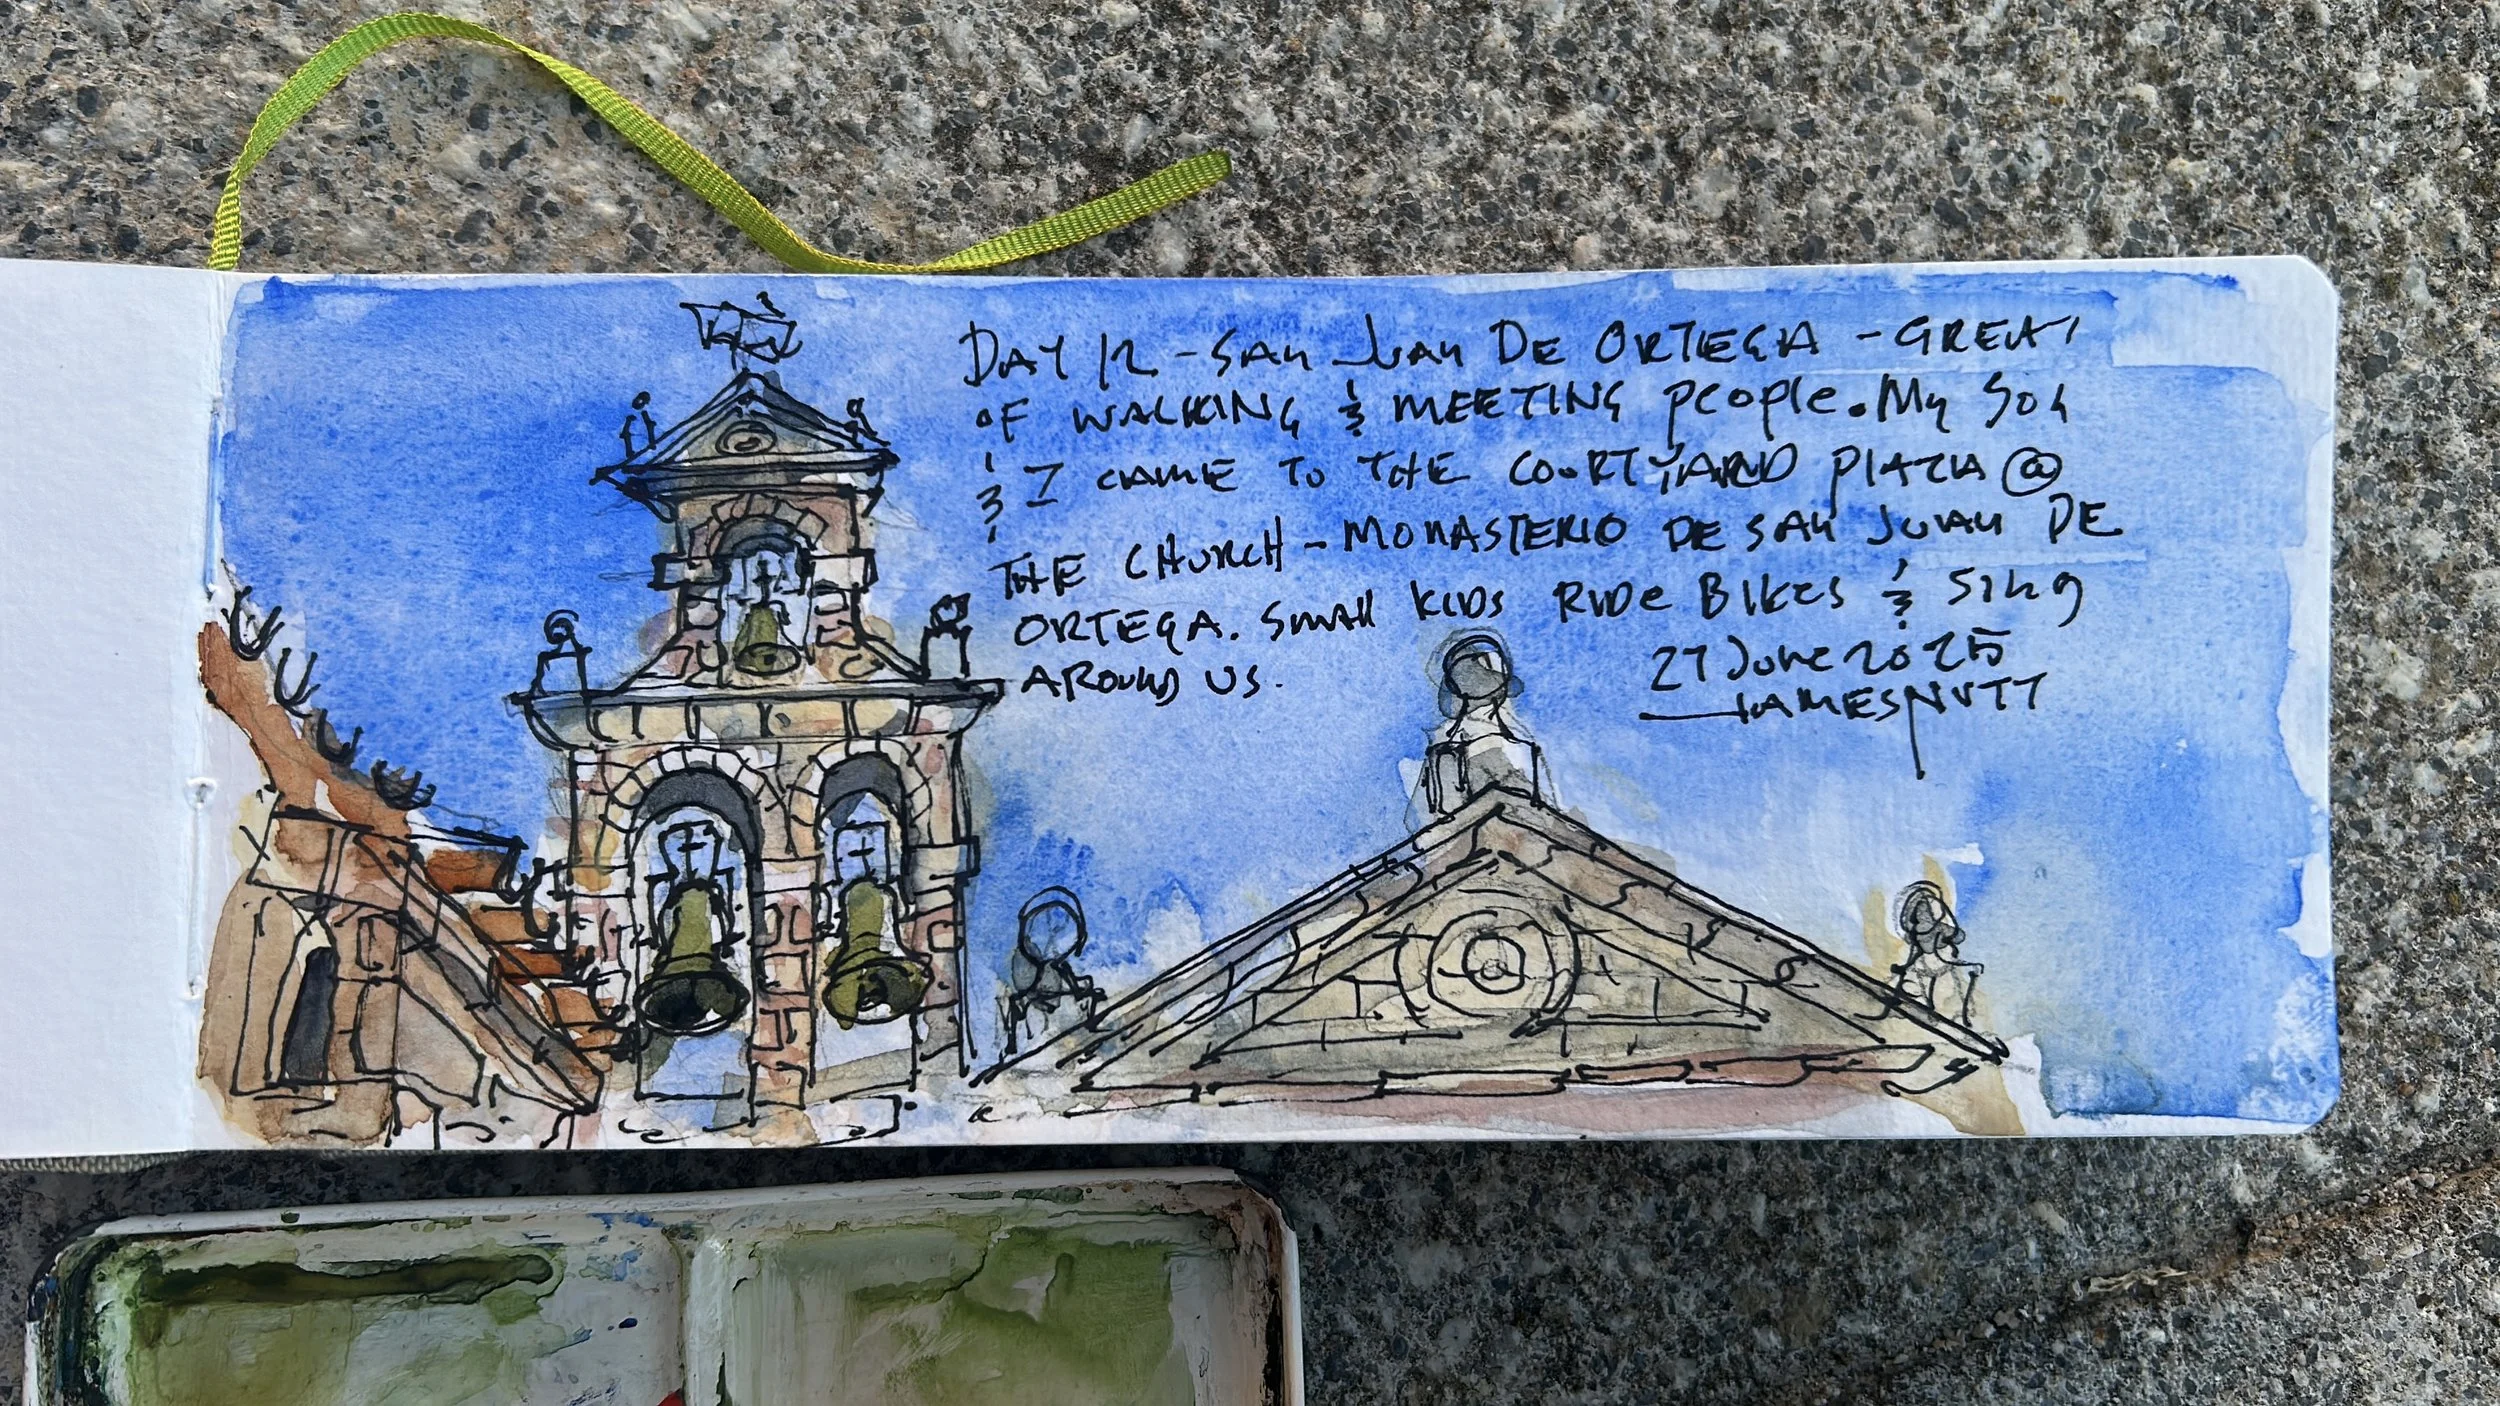 DAY 12 - SAN JUAN DE ORTEGA - GREAT
OF WALKING & MEETING people. My SON
& I CAME TO THE COURTYARD PLAZA @
THE CHURCH - MONASTERIO DE SAN JUAN DE
ORTEGA. SMALL KIDS RIDE BIKES & SING
AROUND US.
27 June 2025
JAMES NUTT